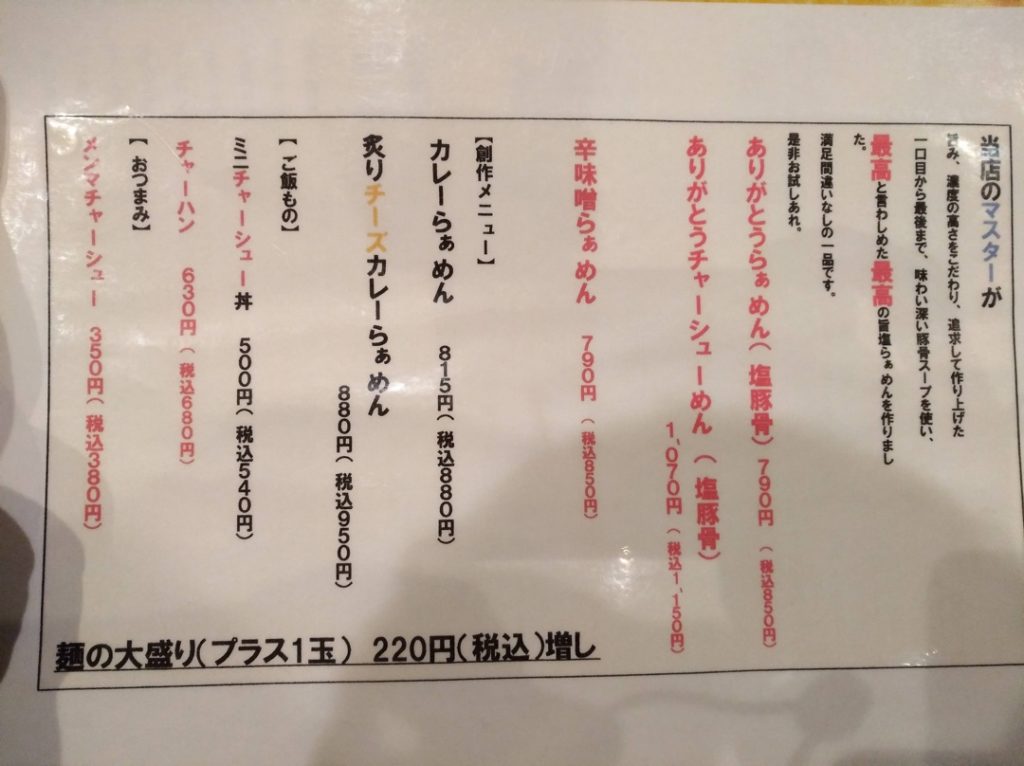 当店のマスターが
旨み、濃度の高さをこだわり、追求して作り上げた
一口目から最後まで、味わい深い豚骨スープを使い、
最高と言わしめた最高の旨塩らぁめんを作りまし
た。
満足間違いなしの一品です。
是非お試しあれ。
ありがとうらぁめん(塩豚骨)790円(税込850円)
ありがとうチャーシューめん(塩豚骨)
1、070円(税込1、150円)
辛味噌らぁめん 790円(税込850円)
【創作メニュー】
カレーらぁめん 815円(税込880円)
炙りチーズカレーらぁめん
880円(税込950円)
【ご飯もの】
ミニチャーシュー丼 500円(税込540円)
チャーハン 630円(税込680円)
【おつまみ】
メンマチャーシュー 350円(税込380円)
麺の大盛り(プラス1玉) 220円(税込)増し